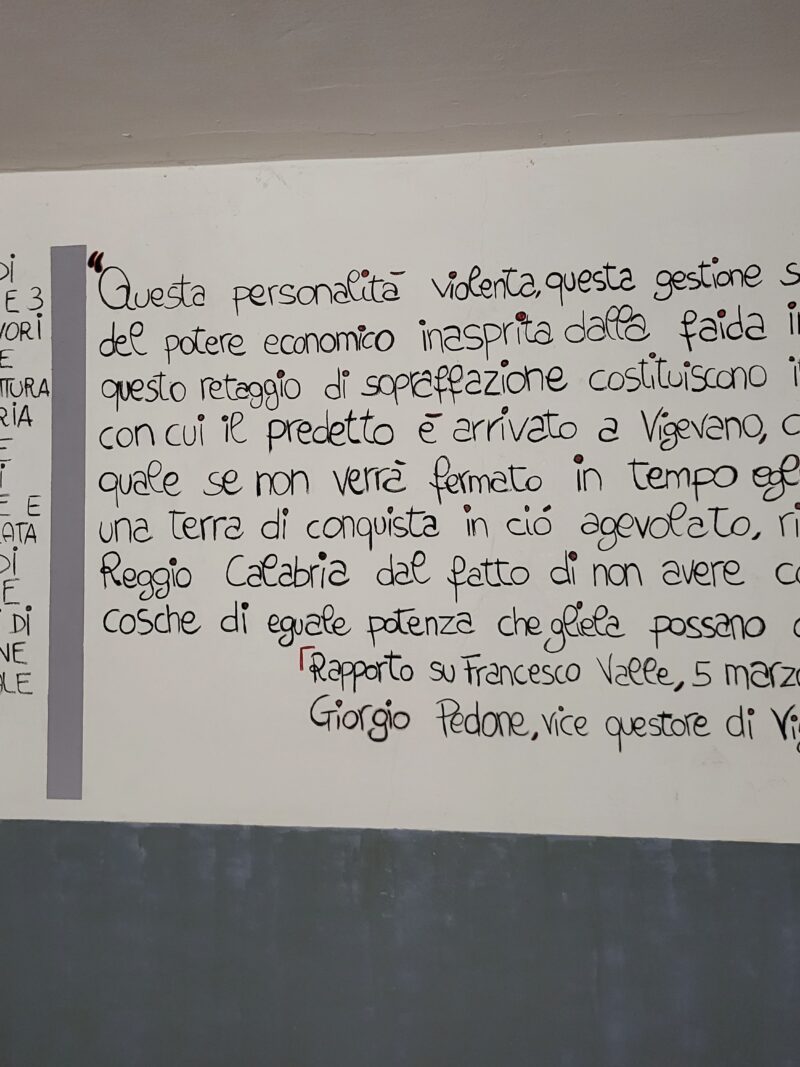 DI
E 3
VORI
E
TTURA
RIA
E
I
E E
ATA
DI
E
I DI
NE
LE
"Questa personalità violenta, questa gestione s
del potere economico inasprita dalla faida in
questo retaggio di sopraffazione costituiscono i
con cui il predetto è arrivato a Vigevano, c
quale se non verrà fermato in tempo egl
una terra di conquista in ció agevolato, ri
Reggio Calabria dal fatto di non avere co
cosche di eguale potenza che gliela possano
Rapporto su Francesco Valle, 5 marzo
Giorgio Pedone, vice questore di Vig